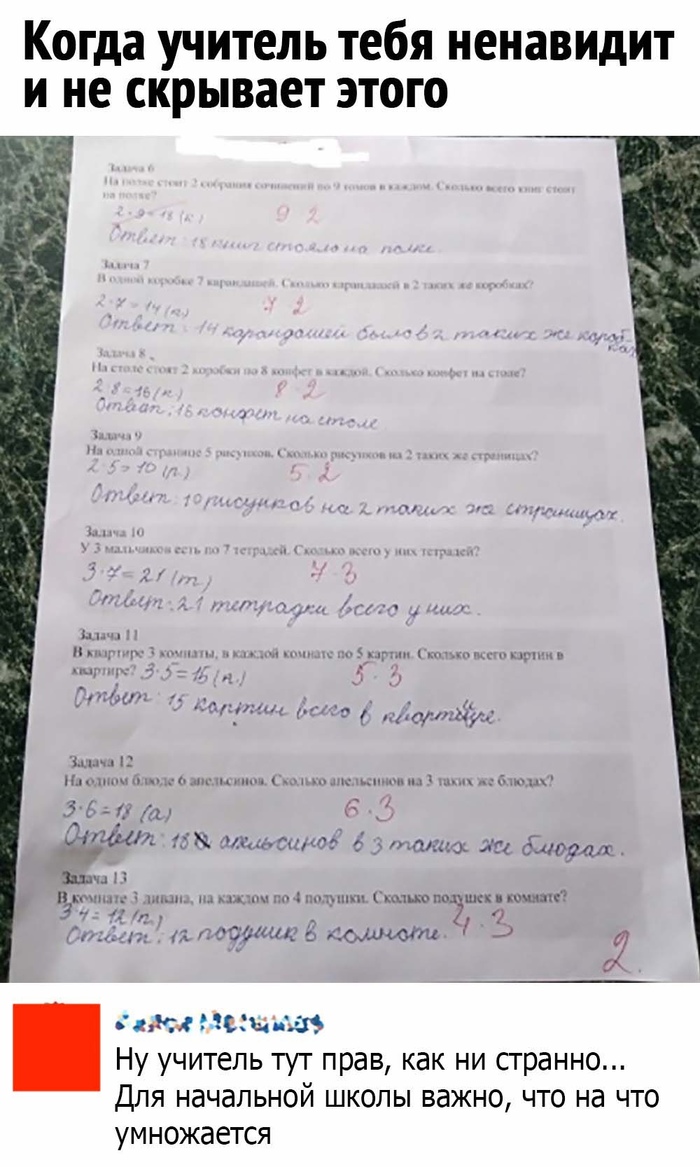 Когда учитель тебя ненавидит
и не скрывает этого
Задача 6
На полке стоят 2 собрания сочинений по 9 томов в каждом. Сколько всего книг стоит
на полке?
2·9=18(к) 9 2
Ответ: 18 книг стояло на полке.
Задача 7
В одной коробке 7 карандашей. Сколько карандашей в 2 таких же коробках?
2·7=14(к) 7 2
Ответ: 14 карандашей было в 2 таких же короб
ках
Задача 8
На столе стоят 2 коробки по 8 конфет в каждой. Сколько конфет на столе?
2·8=16(к) 8·2
Ответ: 16 конфет на столе
Задача 9
На одной странице 5 рисунков. Сколько рисунков на 2 таких же страницах?
2·5=10(р) 5·2
Ответ: 10 рисунков на 2 таких же страницах.
Задача 10
У 3 мальчиков есть по 7 тетрадей. Сколько всего у них тетрадей?
3·7=21(т) 7·3
Ответ: 21 тетрадки всего у них.
Задача 11
В квартире 3 комнаты, в каждой комнате по 5 картин. Сколько всего картин в
квартире? 3·5=15(к.) 5·3
Ответ: 15 картин всего в квартире.
Задача 12
На одном блюде 6 апельсинов. Сколько апельсинов на 3 таких же блюдах?
3·6=18(а) 6·3
Ответ: 18 апельсинов в 3 таких же блюдах.
Задача 13
В комнате 3 дивана, на каждом по 4 подушки. Сколько подушек в комнате?
3·4=12(п.) 4·3
Ответ: 12 подушек в комноте.
2.
Ну учитель тут прав, как ни странно...
Для начальной школы важно, что на что
умножается